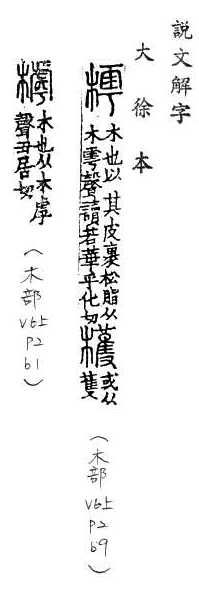 說文解字
大徐本
樗 木也以其皮裹松脂从
木雩聲讀若華乎化切
檴 或从
蒦
（木部 V6上 P2 69）
㯉 木也从木虖
聲丑居切
（木部 V6上 P2 61）